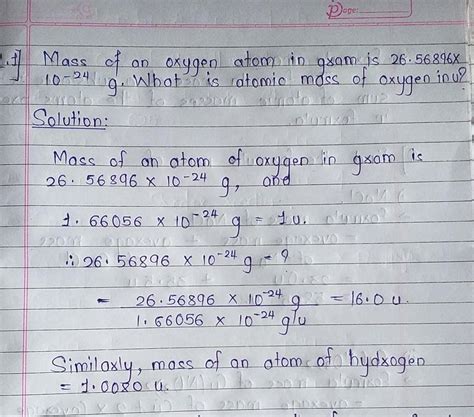 Page:
.1] Mass of an oxygen atom in gram is 26.56896×
10⁻²⁴ g. What is atomic mass of oxygen in u?
Solution:
Mass of an atom of oxygen in gram is
26.56896 × 10⁻²⁴ g, and
1.66056 × 10⁻²⁴ g = 1u.
∴ 26.56896 × 10⁻²⁴ g = ?
= 26.56896 × 10⁻²⁴ g = 16.0 u.
1.66056 × 10⁻²⁴ g/u
Similarly, mass of an atom of hydrogen
= 1.0080 u.